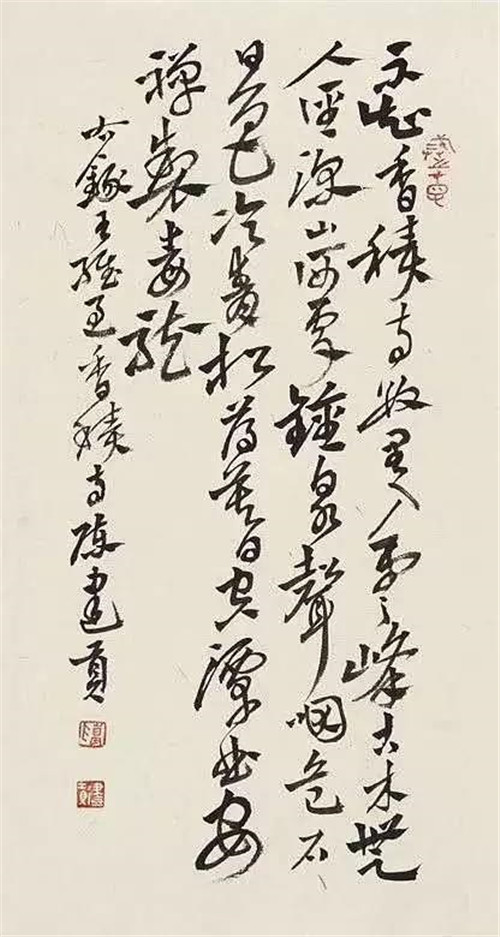 不知香積寺數里入雲峰古木無
人徑深山何處鍾泉聲咽危石
日色冷青松薄暮空潭曲安
禪製毒龍
右錄王維過香積寺陳建貢